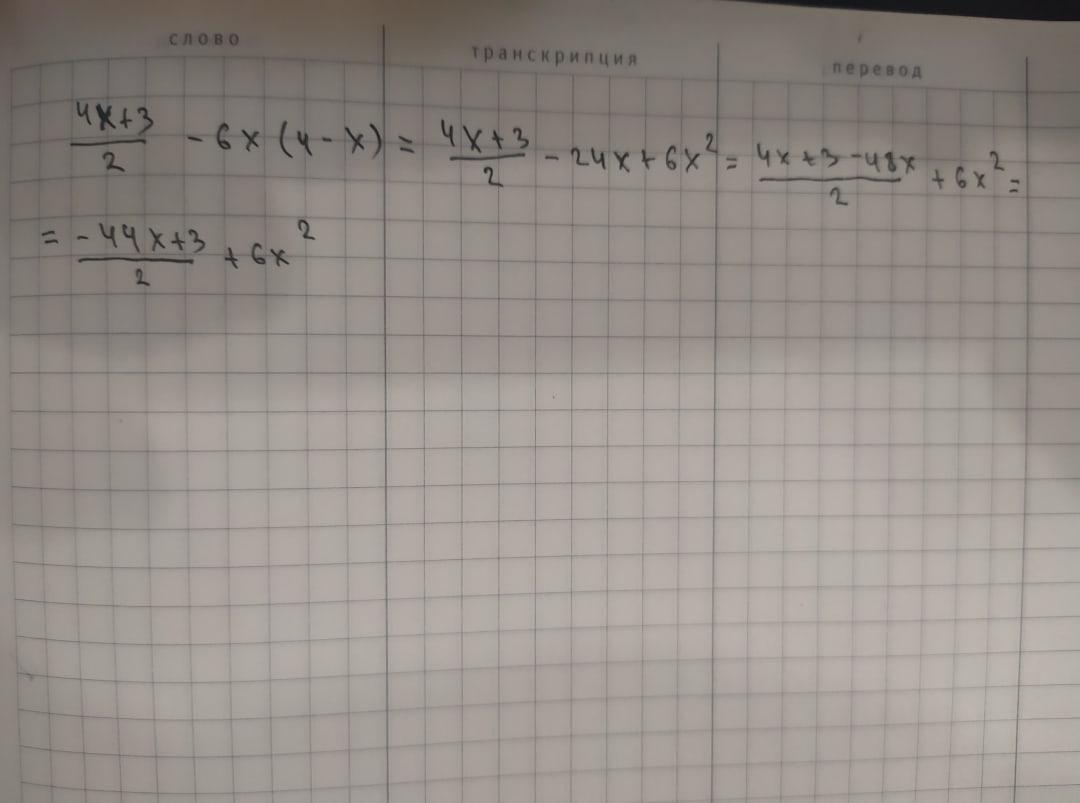 слово транскрипция перевод
(4x+3)/2 - 6x (4-x) = (4x+3)/2 - 24x + 6x² = (4x+3-48x)/2 + 6x² =
= (-44x+3)/2 + 6x²